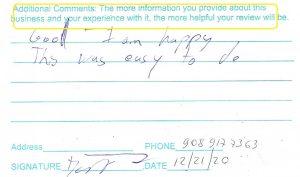 Additional Comments: The more information you provide about this
business and your experience with it, the more helpful your review will be.
Good - I am happy
This was easy to do
Address PHONE 908 917 7363
SIGNATURE DATE 12/21/20